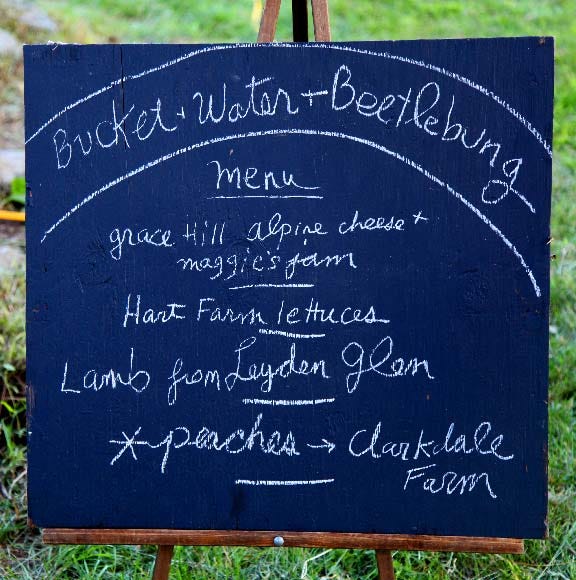 Bucket + Water + Beetlebung
menu
grace Hill alpine cheese +
maggie's jam
Hart Farm lettuces
Lamb from Leyden Glen
* peaches → Clarkdale
Farm